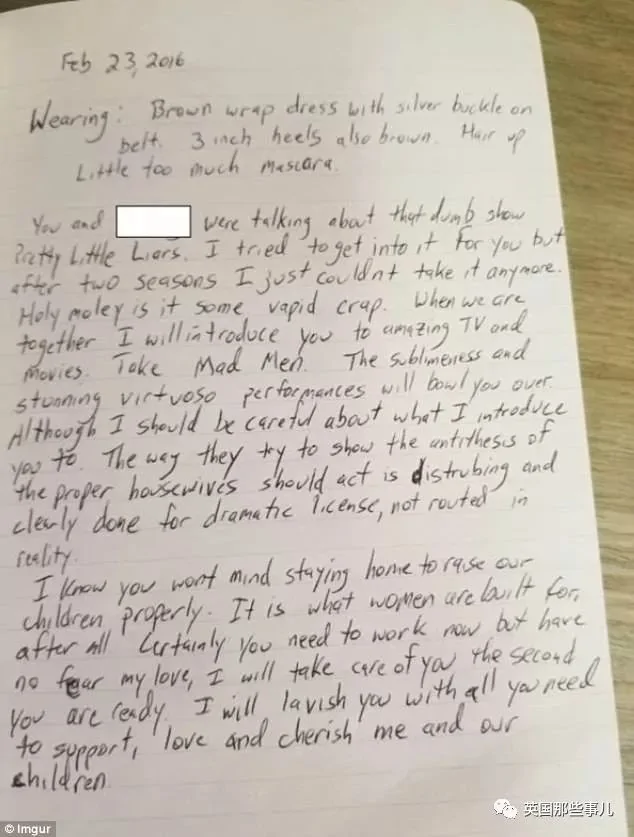 Feb 23, 2016
Wearing: Brown wrap dress with silver buckle on
belt. 3 inch heels also brown. Hair up
Little too much mascara.
You and were talking about that dumb show
Pretty Little Liars. I tried to get into it for you but
after two seasons I just couldnt take it anymore.
Holy moley is it some vapid crap. When we are
together I will introduce you to amazing TV and
movies. Take Mad Men. The sublimeness and
stunning virtuoso performances will bowl you over.
Although I should be careful about what I introduce
you to. The way they try to show the antithesis of
the proper housewives should act is distrubing and
clearly done for dramatic license, not routed in
reality.
I know you wont mind staying home to raise our
children properly. It is what women are built for,
after all Certainly you need to work now but have
no fear my love, I will take care of you the second
you are ready. I will lavish you with all you need
to support, love and cherish me and our
children.
© Imgur
英国那些事儿